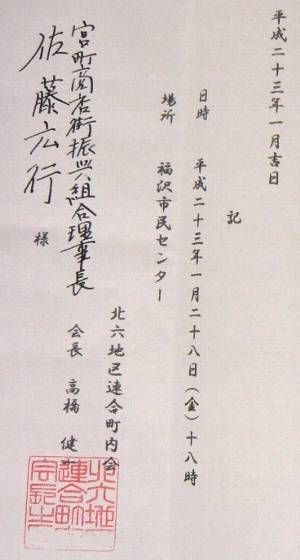 平成二十三年一月吉日
記
日時　平成二十三年一月二十八日（金）十八時
場所　福沢市民センター
北六地区連合町内会
会長　高橋　健
宮町商店街振興組合理事長
佐藤広行　様
北六地
連合町
会長之